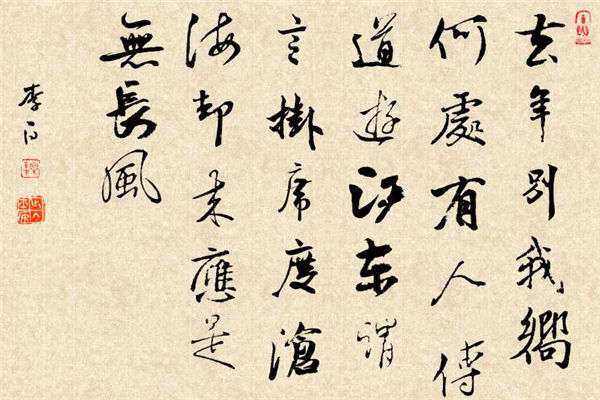 去年别我嚮
何處有人傳
道遊江東謂
言掛席度滄
海却来應是
無長風
李白